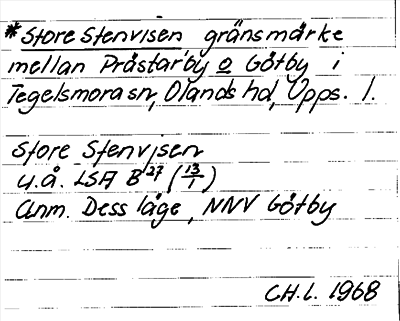 *Store Stenvisen gränsmärke
mellan Prästarby o Götby i
Tegelsmora sn, Olands hd, Upps. l.
Store Stenvisen
u.å. LSA B 27 (13/1)
Anm. Dess läge, NNV Götby
CH.L. 1968